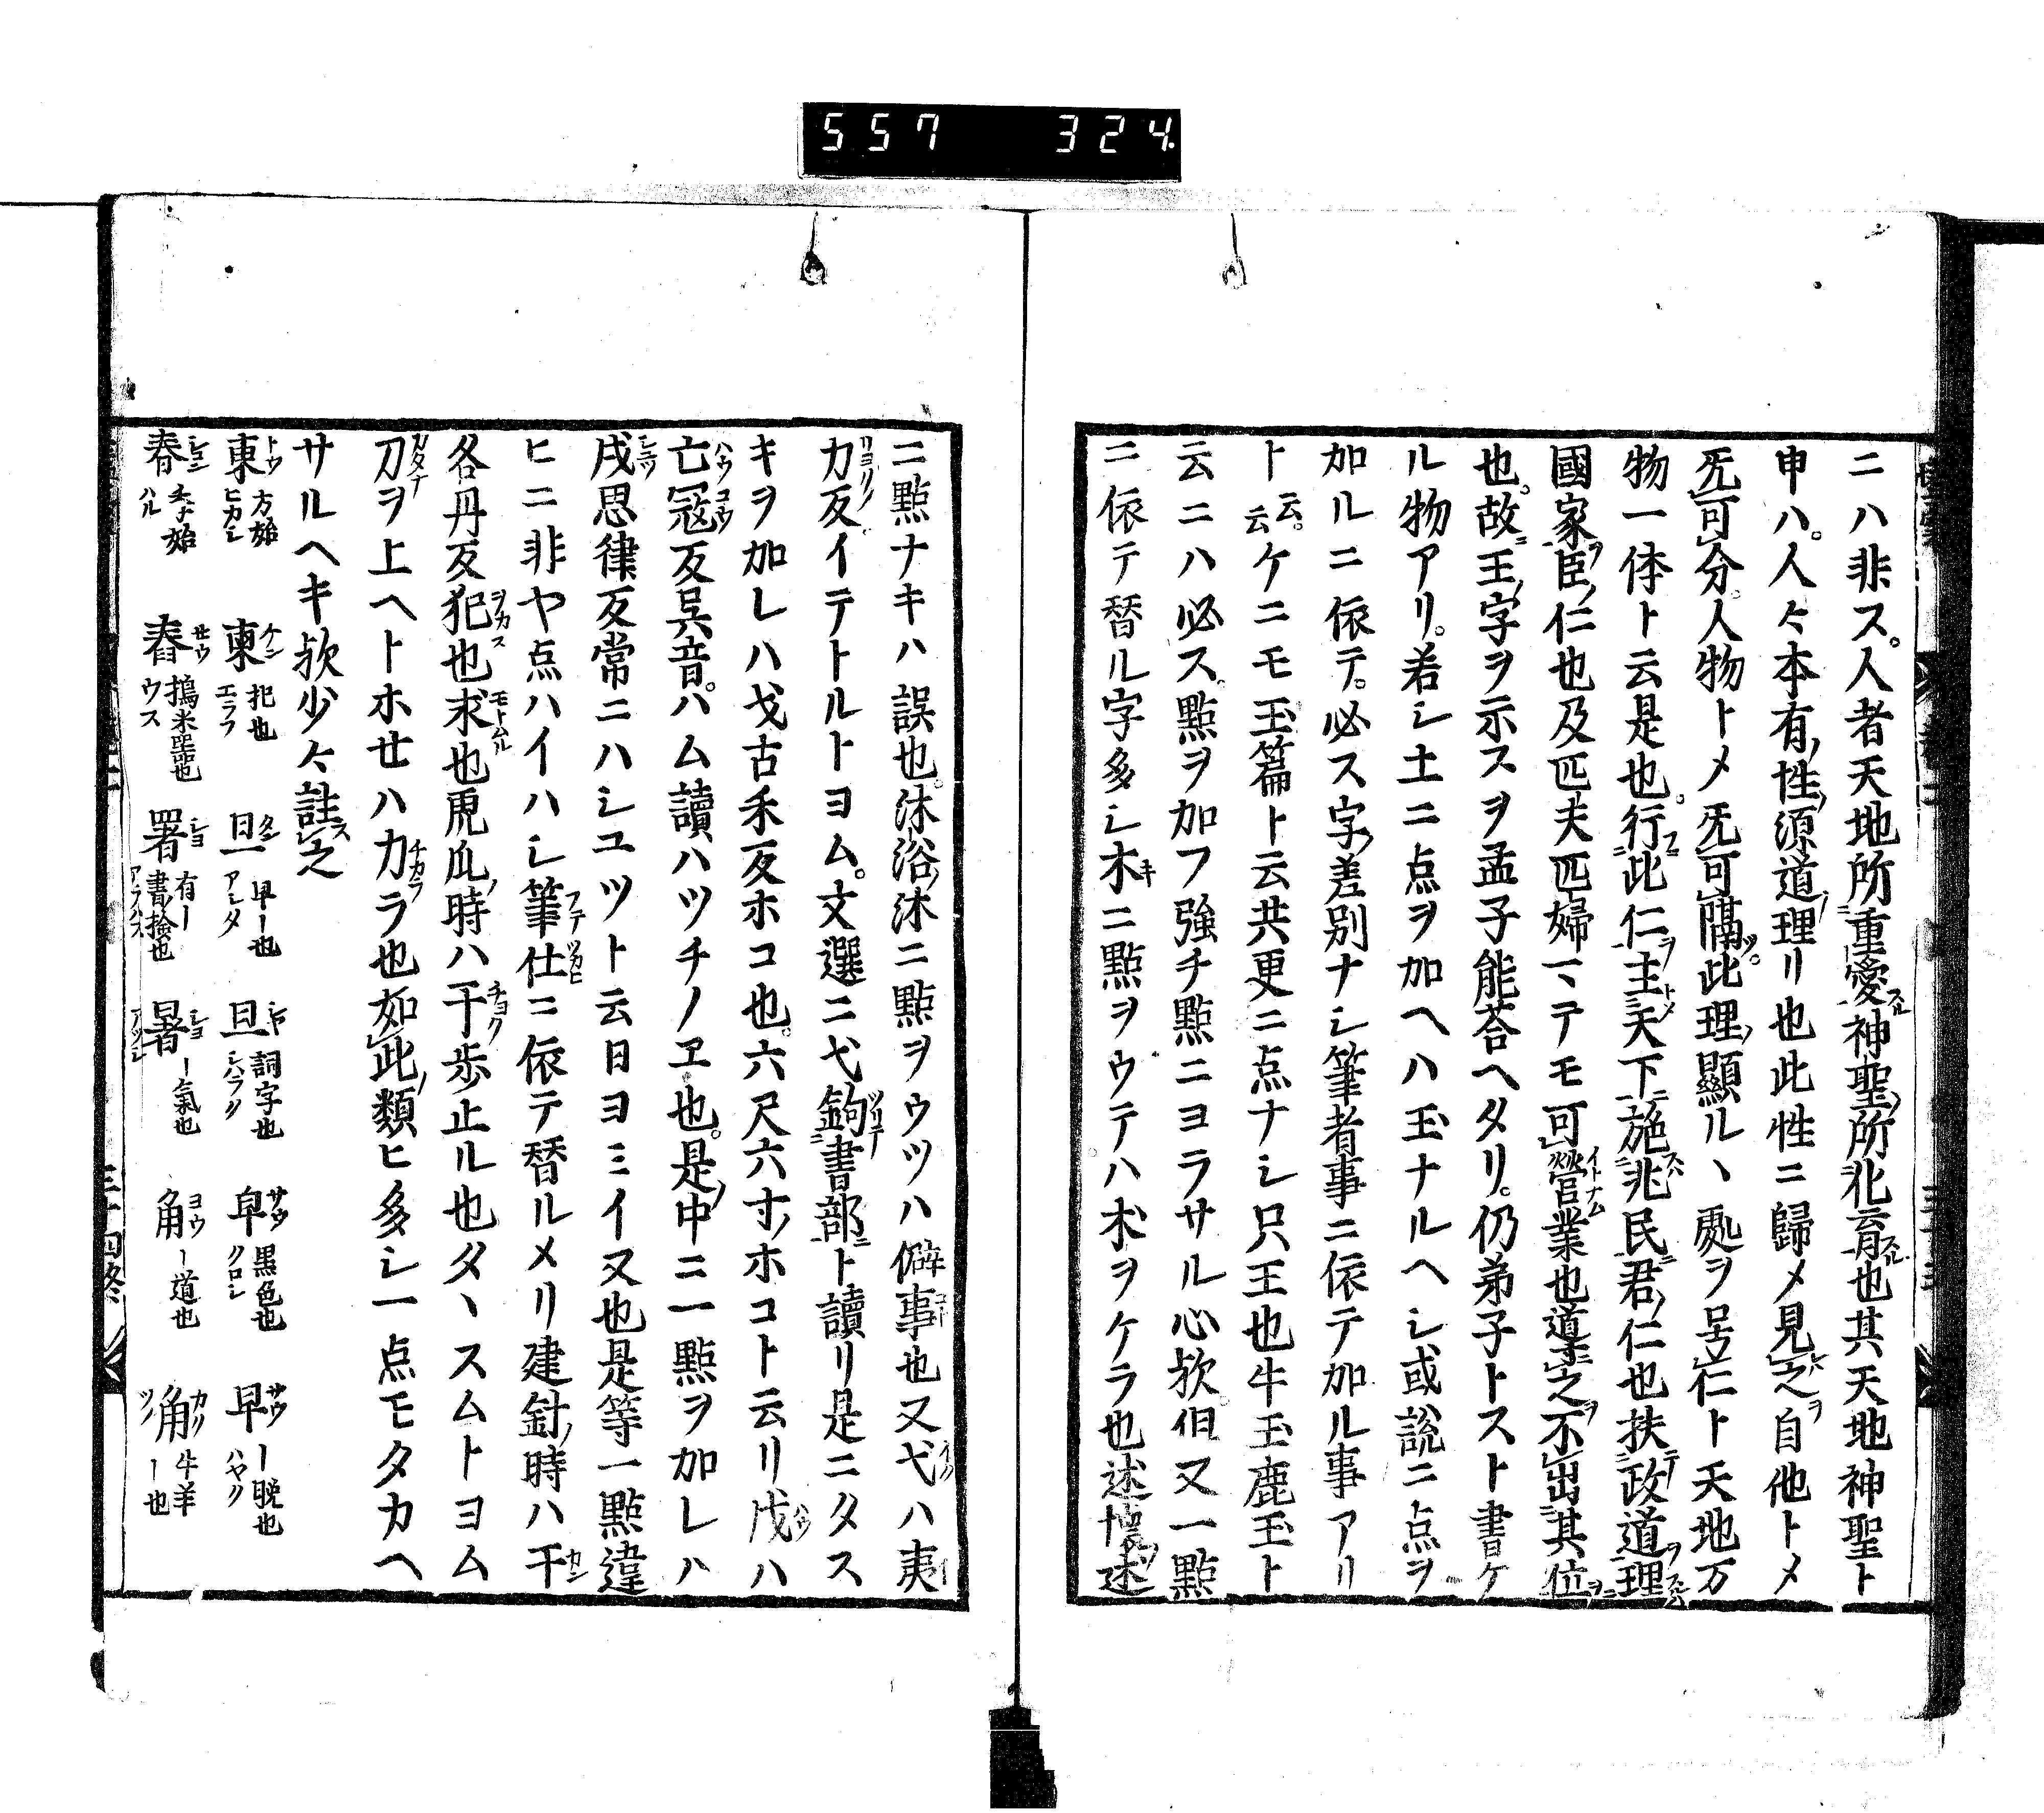 557 324.
ニハ非ス。人者天地所重愛スル神聖ノ所化育スル也其天地神聖ト
申ハ。人々本有ノ性ノ源道ノ理リ也此性ニ歸メ見之ヲ自他トメ
旡可分。人物トメ旡可隔ツ。此理ノ顯ルヽ處ヲ号仁ト天地万
物一体ト云是也。行此仁ヲ主天下ニ施兆民ニ君ノ仁也扶政道ヲ理
國家ヲ臣ノ仁也及匹夫匹婦ニテモ可營イトナム業也道之ヲ不出其位ヲ
也。故ニ王ノ字ヲ示スヲ孟子能荅ヘタリ。仍弟子トスト書ケ
ル物アリ。若シ土ニ点ヲ加ヘハ玉ナルヘシ或説ニ点ヲ
加ルニ依テ。必ス字ノ差別ナシ筆者事ニ依テ加ル事アリ
ト云云。ケニモ玉篇ト云共更ニ点ナシ只王也牛玉鹿玉ト
云ニハ必ス點ヲ加フ強チ點ニヨラサル心欤。但又一點
ニ依テ替ル字多シ木キニ點ヲウテハ朮ヲケラ也述懷ノ述
ニ點ナキハ誤也。沐浴ノ沐ニ點ヲウツハ僻事也又弋ハ夷
力反イテトルトヨム。文選ニ弋鉤書部ト讀リ是ニタス
キヲ加レハ戈古禾反ホコ也。六尺六寸ノホコト云リ戊ハ
亡冦反呉音。ハム讀ハツチノヱ也。是ノ中ニ一點ヲ加レハ
戌思律反常ニハシユツト云日ヨミイヌ也是等一點違
ヒニ非ヤ点ハイハシ筆仕フテツカヒニ依テ替ルメリ建針ノ時ハ干
各丹反犯ヲカス也求モトムル也鳧爪ノ時ハ亍チヨク歩止ル也タヽスムトヨム
刀カタナヲ上ヘトホセハ力チカラ也如此ノ類ヒ多シ一点モタカヘ
サルヘキ欤少々註ス之
東トウ 方始 ヒカシ 柬 エラフ 旦タン 早ー也 アシタ 且 詞字也 シハラク 皁サウ 黒色也 クロシ 早サウ ー晩也 ハヤク
春シユン 季始 ハル 舂 擣米 ウス 署シヨ 有ー 書撿也 暑シヨ ー氣也 アツシ ー道也 角カク 牛羊ー也 ツノ